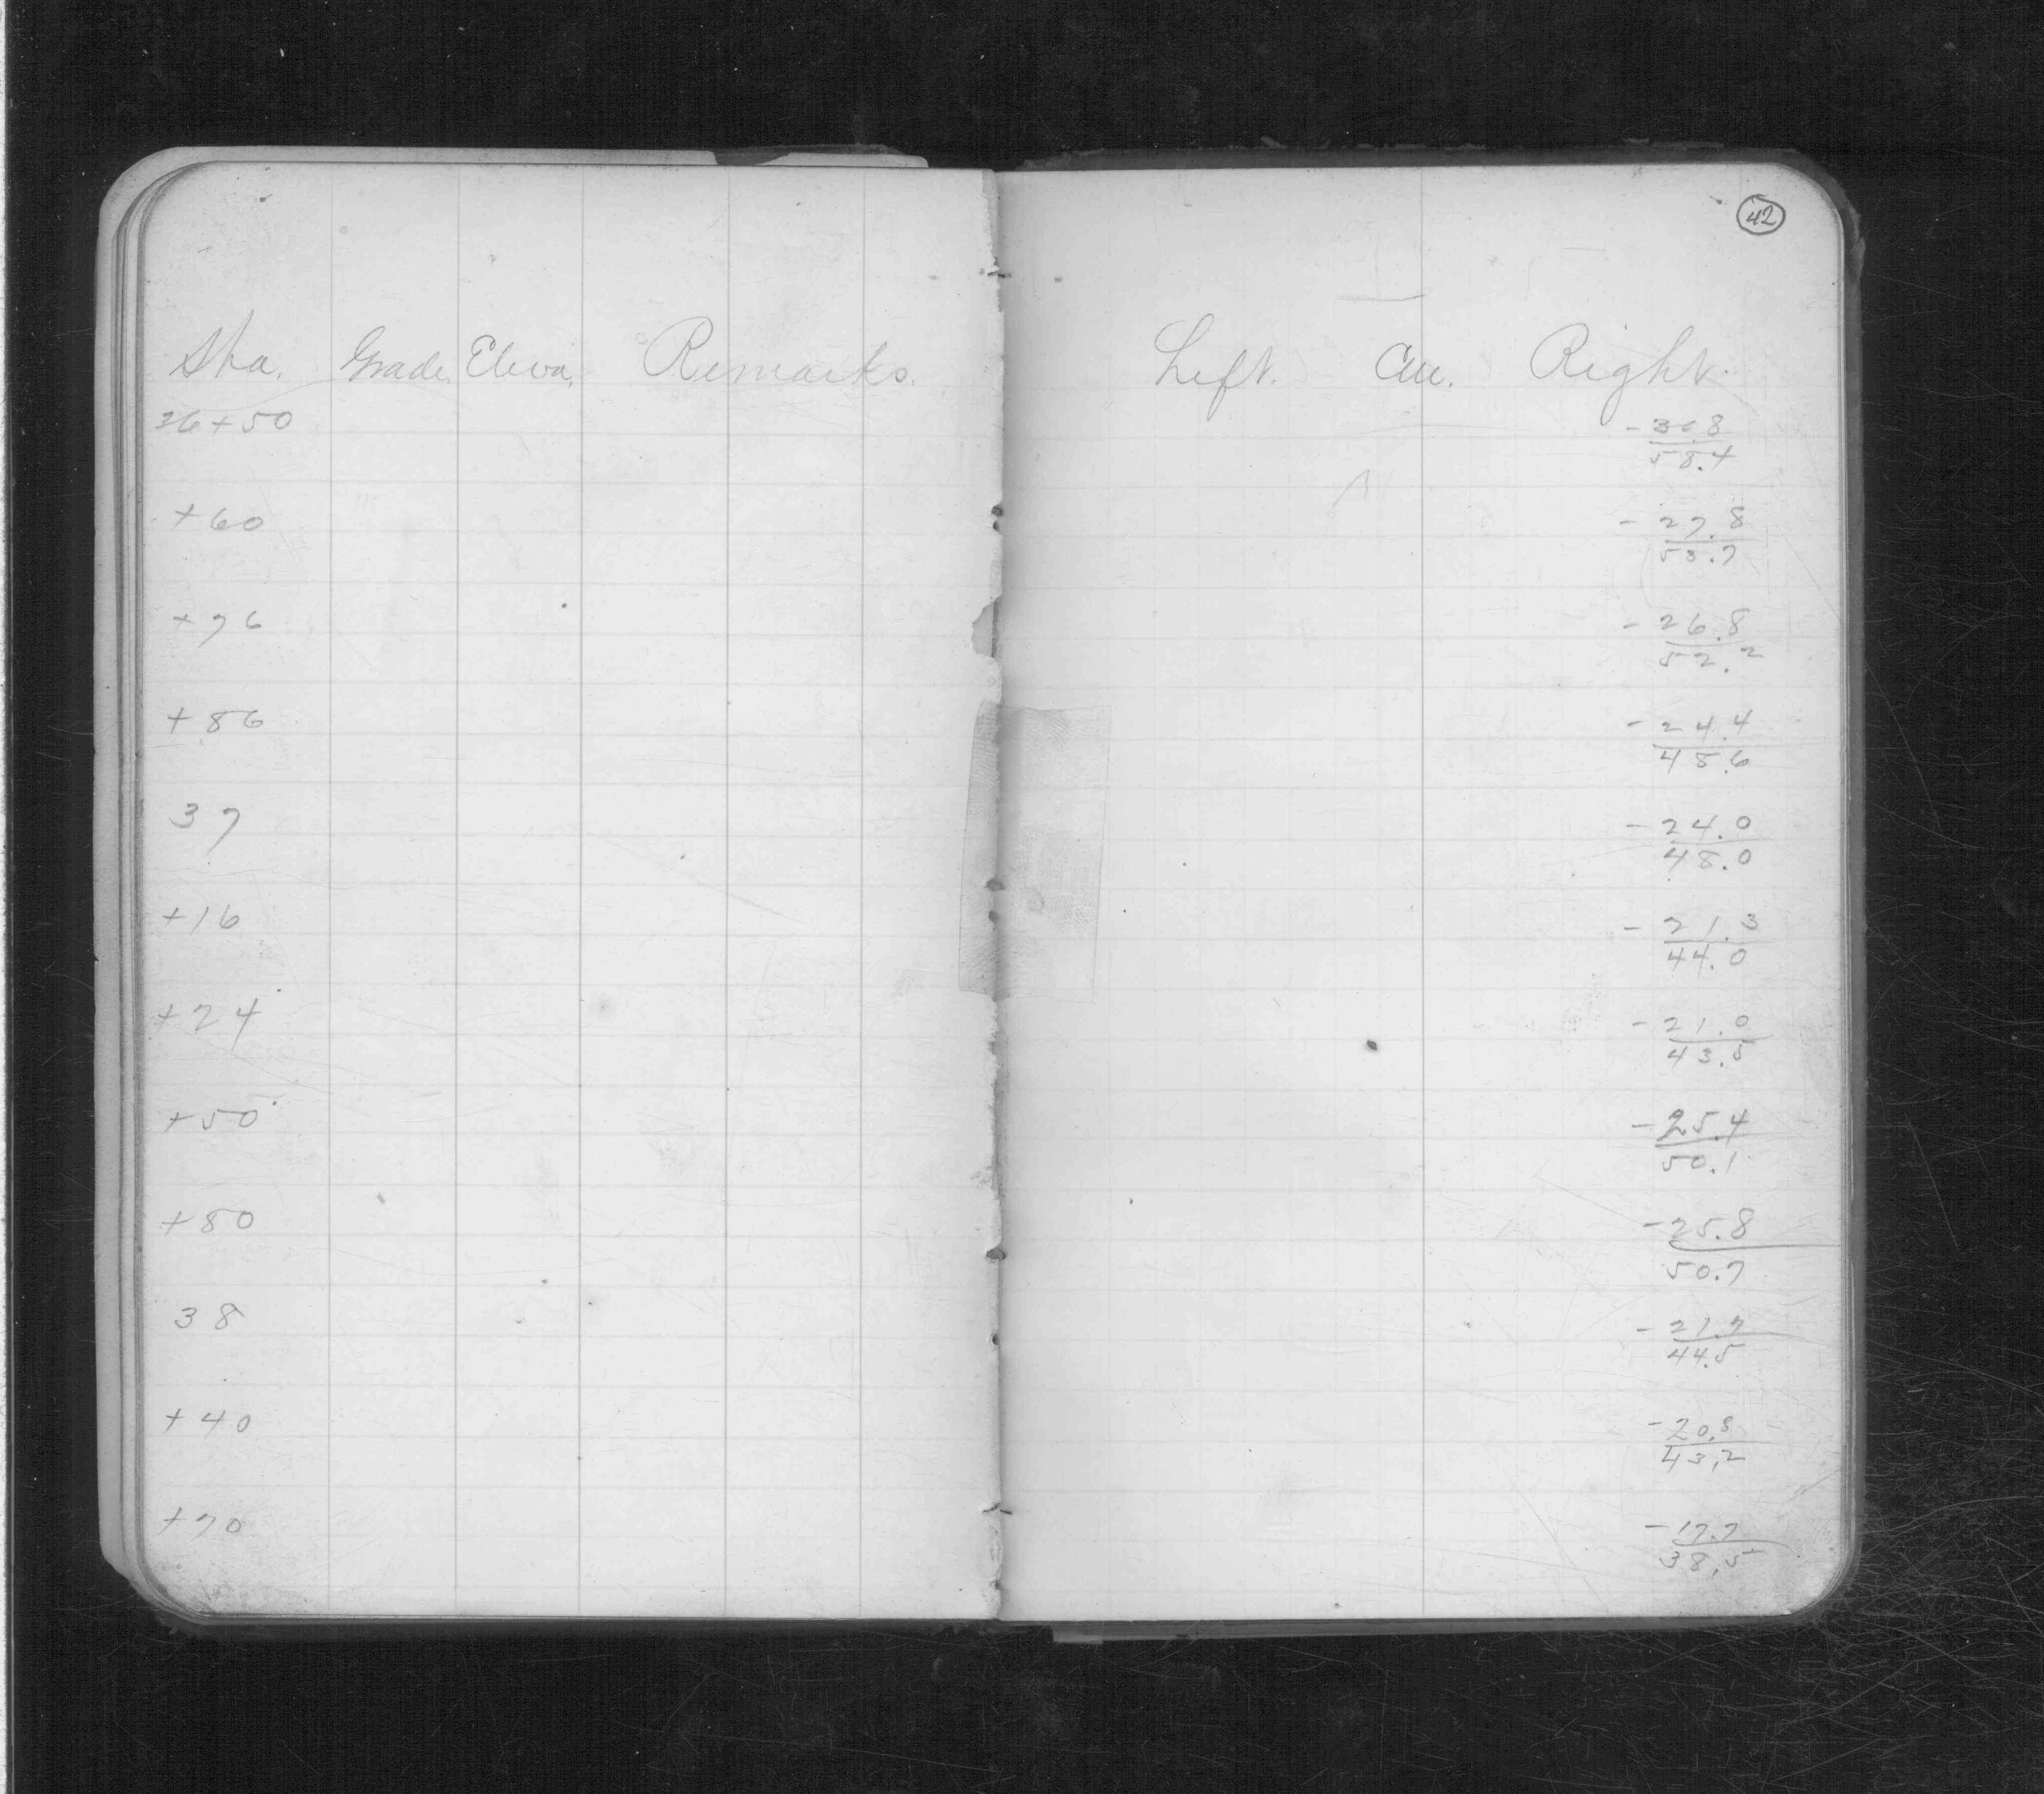 42
Sta. Grade. Eleva. Remarks. Left. Cen. Right.
26+50 - 30.8
58.4
+60 - 27.8
53.7
+76 - 26.8
52.2
+86 - 24.4
48.6
37 - 24.0
48.0
+16 - 21.3
44.0
+24 - 21.0
43.5
+50 - 25.4
50.1
+80 - 25.8
50.7
38 - 21.7
44.5
+40 - 20.8
43.2
+70 - 17.7
38.5